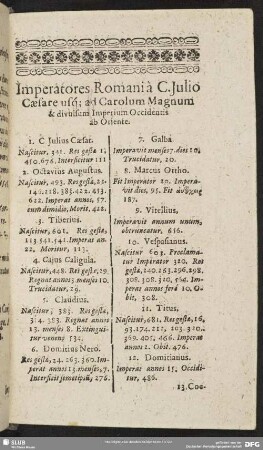 Imperatores Romani à C. Julio
Cæsare usq; ad Carolum Magnum
& divulsum Imperium Occidentis
ab Oriente.
1. C Julius Cæsar.
Nascitur, 341. Res gesta 1;
410.676. Interficitur 111
2. Octavius Augustus.
Nascitur, 493. Res gesta, 22.
141.218.383.422.413.
622. Imperat annos, 57.
cum dimidio, Morit. 422.
3. Tiberius.
Nascitur, 601. Res gesta,
113.541.541. Imperat an.
22. Moritur, 113.
4. Cajus Caligula.
Nascitur, 448. Res gesta, 29.
Regnat annos 3 menses 10.
Trucidatur, 29.
5. Claudius.
Nascitur, 383. Res gesta,
314.383. Regnat annos
13. menses 8. Extingui-
tur veneno, 532.
6. Domitius Nero.
Res gesta, 24.263.360. Im-
perat annos 13. menses, 7.
Interficit semetipsū, 276.
7. Galba
Imperavit menses 7. dies 10,
Trucidatur, 20.
8. Marcus Ottho.
Fit Imperator 20. Impera-
vit dies, 95. Fit
187.
9. Vitellius,
Imperavit annum unum,
obtruncatur, 616.
10. Vespasianus.
Nascitur 603. Proclama-
tur Imperator 320. Res
gesta, 140.263.296.298.
308.308.320, 564. Im-
perat annos ferè 10. O-
bit, 308.
11. Titus,
Nascitur, 681. Res gesta, 16,
93.174.212, 303.320.
369.405, 466. Imperat
annos 2. Obit. 476.
12. Domitianus.
Imperat annos 15. Occidi-
tur, 486.
13. Coc-
SLUB